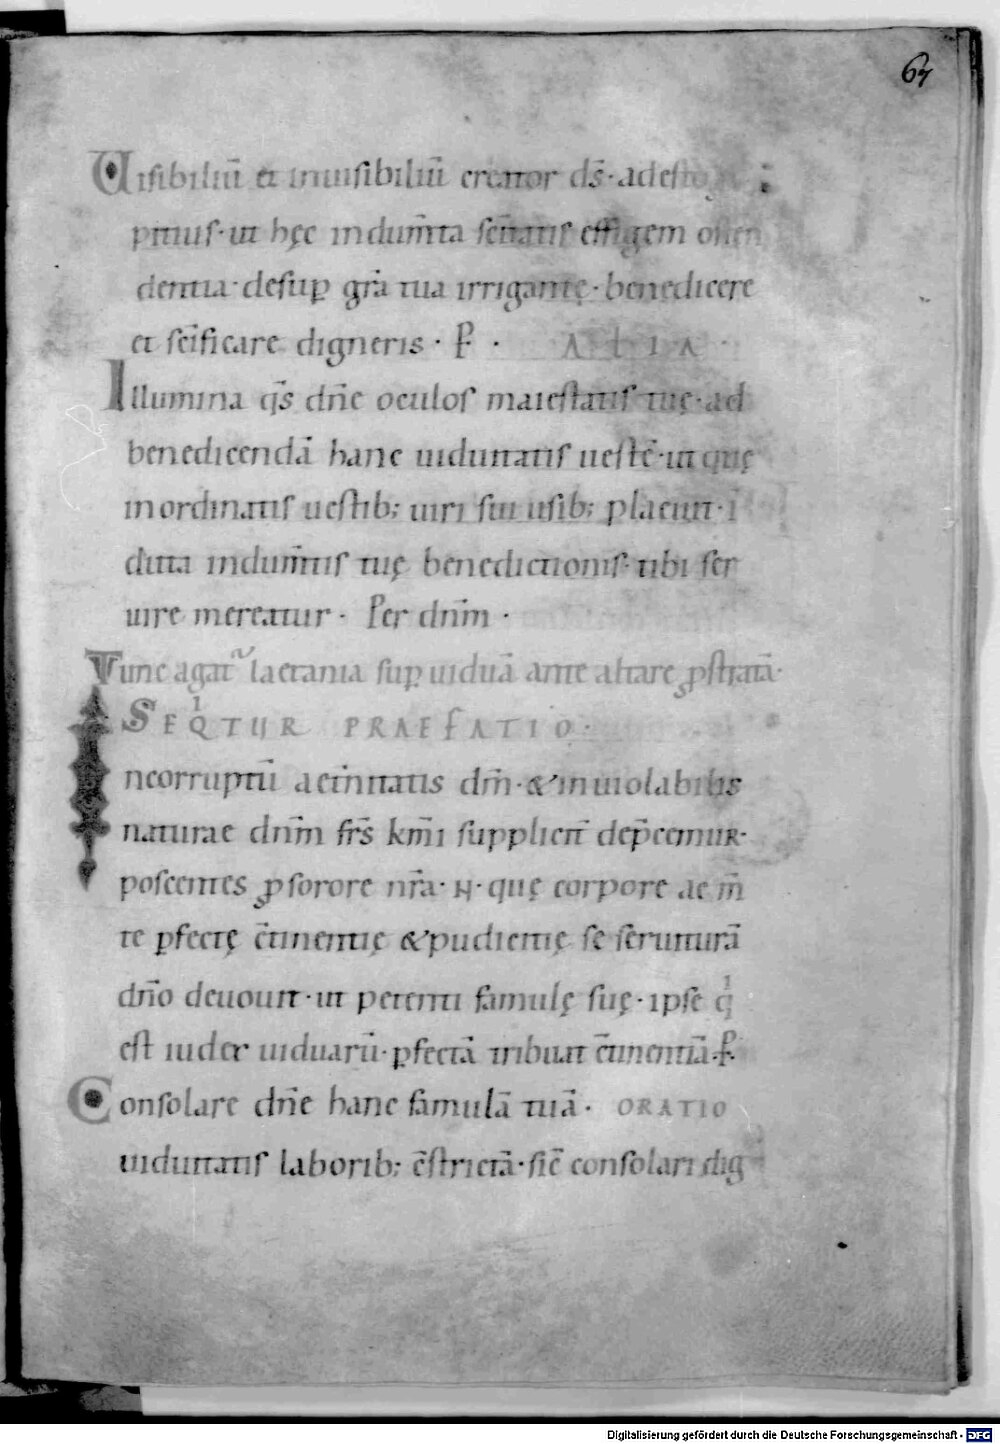 67
Uisibiliū et inuisibiliū creator ds̄· adesto
pitius· ut hęc indum̄ta sc̄itatis effigiem osten
dentia· desup̲ gr̄a tua irrigante· benedicere
et sc̄ificare digneris· P̲· ALIA·
Illumina q̄s dn̄e oculos maiestatis tuę· ad
benedicendā hanc uiduitatis uestē· ut quę
inordinatis uestib; uiri sui usib; placuit· ī
duta indum̄tis tuę benedictionis· tibi ser
uire mereatur· Per dnm̄·
Tunc agat̃ laetania sup̲ uiduā ante altare ꝓstratā·
SEQITUR PRAEFATIO·
Incorruptū aet̄nitatis dm̄· & inuiolabilis
naturae dnm̄ frs̄ km̄i supplicit̄ dep̄cemur·
poscentes ꝓ sorore nr̄a· N· quę corpore ac m̄
te ꝑfectę c̄tinentię & pudicitię se seruiturā
dn̄o deuouit· ut petenti famulę suę· ipse qi
est iudex uiduarū· ꝑfectā tribuat c̄tinentiā· P̲·
Consolare dn̄e hanc famulā tuā· ORATIO
uiduitatis laborib; c̄strictā· sic̄ consolari dig
Digitalisierung gefördert durch die Deutsche Forschungsgemeinschaft - DFG